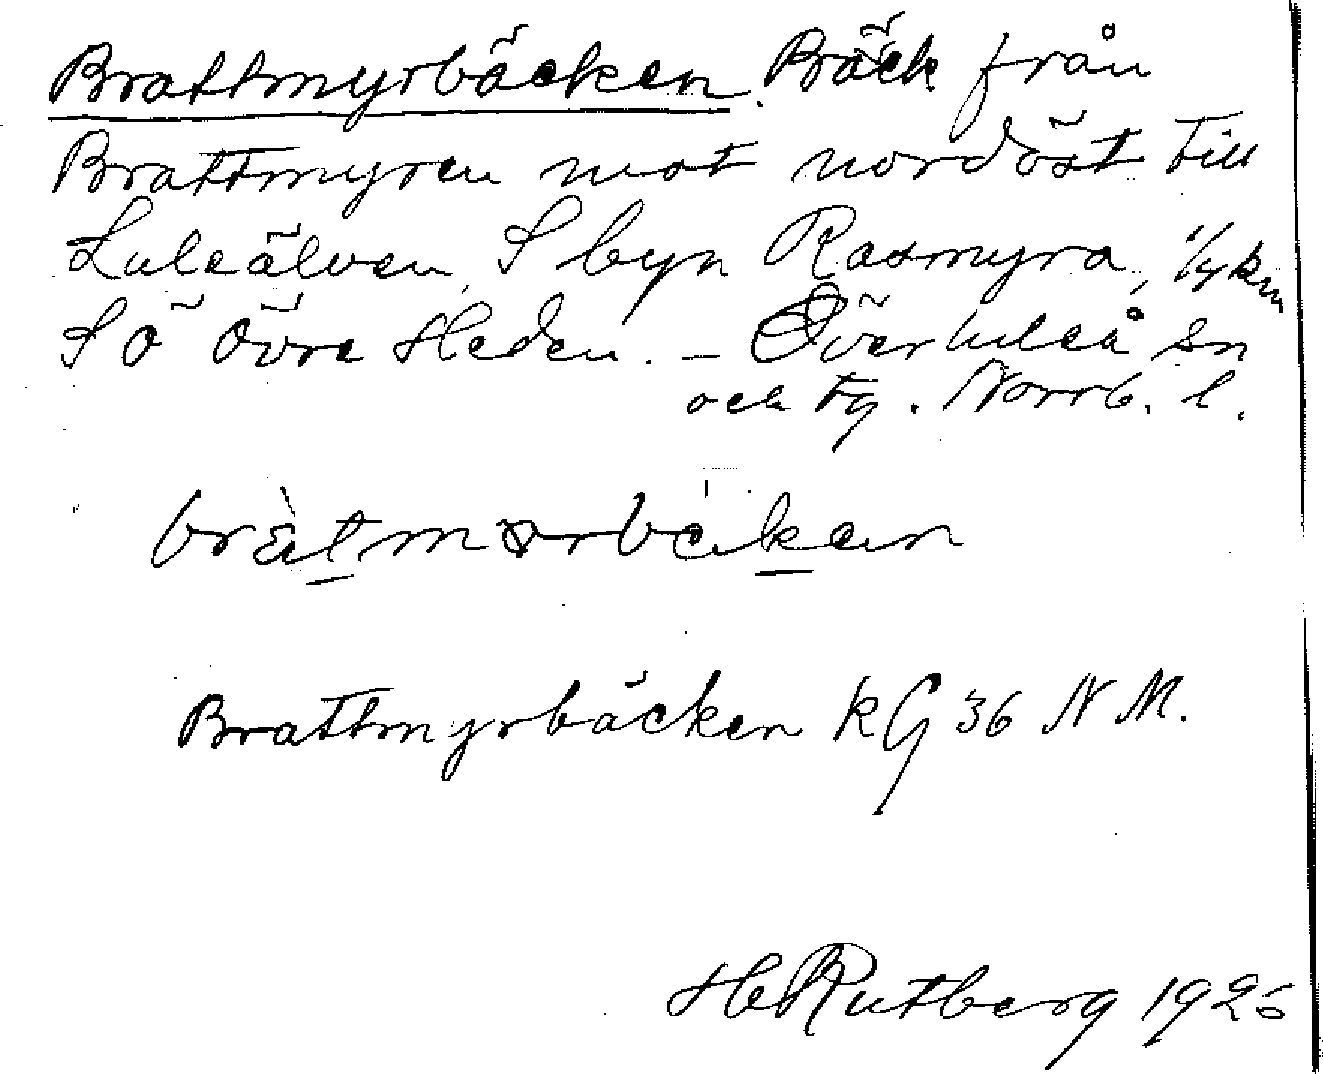 Brattmyrbäcken. Bäck från
Brattmyren mot nordöst till
Luleälven, S byn Rasmyra, 1/4 km
SÖ Övre Heden. – Överluleå sn
och tg. Norrb. l.
Brattmyrbäcken kG 36 N M.
H Rutberg 1925